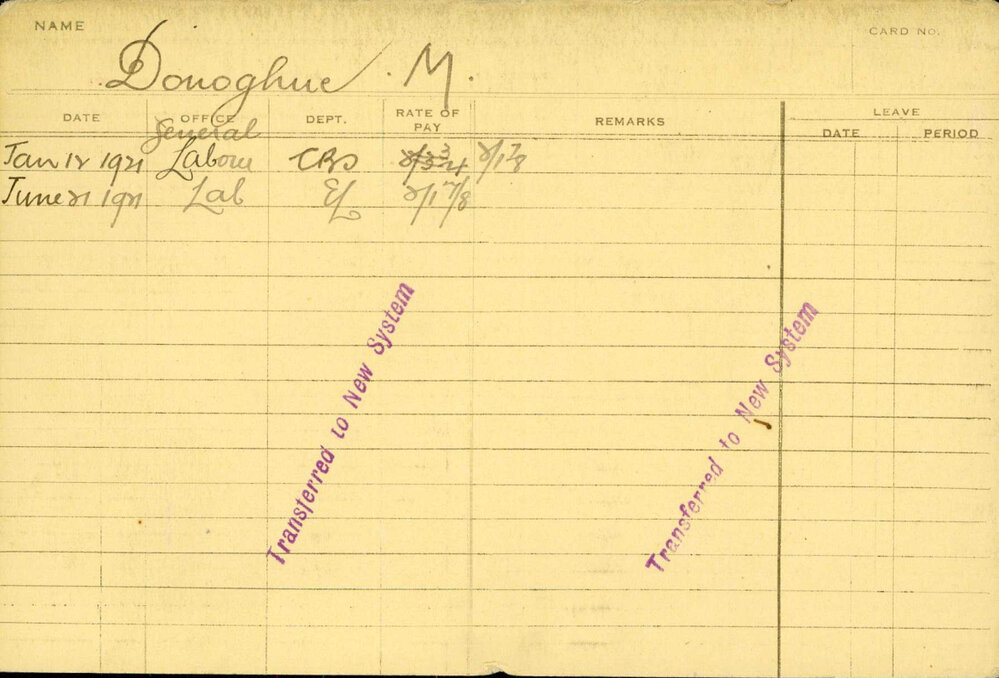 NAME
CARD NO.
Donoghue . M.
DATE
OFFICE
DEPT.
RATE OF PAY
REMARKS
LEAVE
DATE
PERIOD
General
Jan 12 1921 Labour CRS 2/17/8
June 21 1921 Lab EL 2/17/8
Transferred to New System
Transferred to New System